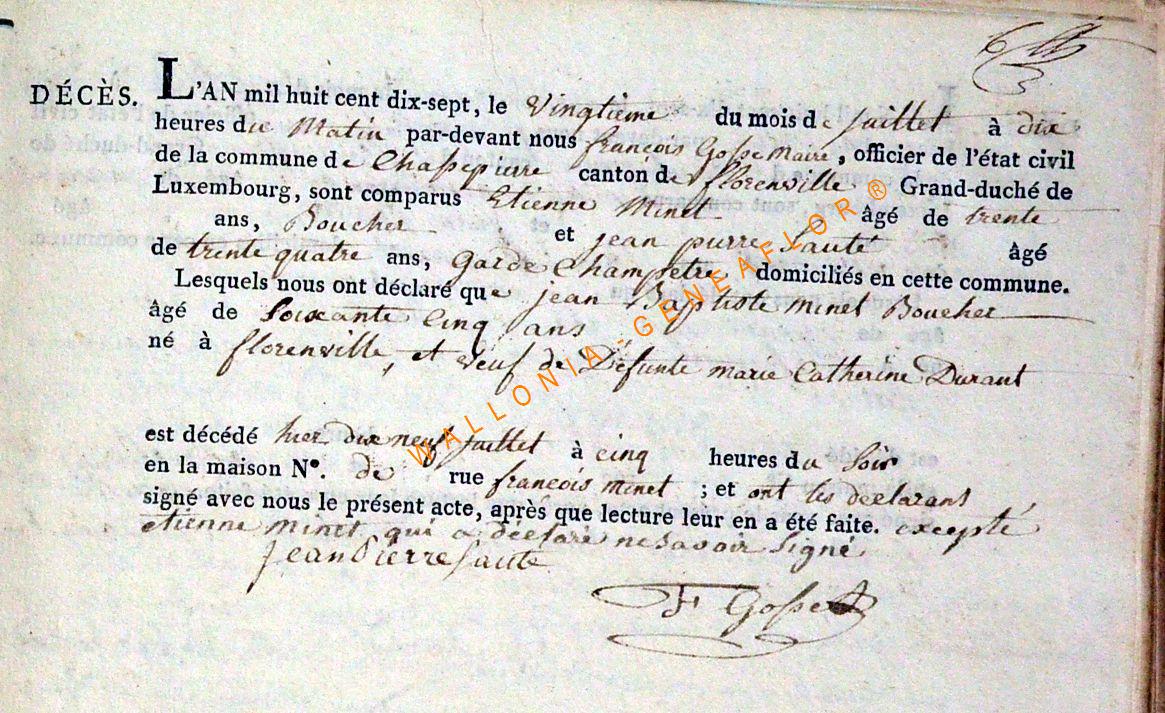 DÉCÈS. L'AN mil huit cent dix-sept, le Vingtieme du mois de juillet à dix
heures du Matin par-devant nous françois Gosse Maire, officier de l'état civil
de la commune de Chassepierre canton de florenville Grand-duché de
Luxembourg, sont comparus Etienne Minet âgé de trente
ans, Boucher et jean pierre Sauté âgé
de trente quatre ans, Garde Champetre domiciliés en cette commune.
Lesquels nous ont déclaré que jean Baptiste Minet Boucher
âgé de Soixante Cinq ans
né à florenville, et Veuf de Defunte marie Catherine Durant
est décédé hier dix neuf juillet à cinq heures du Soir
en la maison N°. de rue françois minet ; et ont les declarans
signé avec nous le présent acte, après que lecture leur en a été faite. excepté
etienne minet qui a déclaré ne savoir signé
Jean Pierre Saute
F Gosse
WALLONIA-GENEAFLOR®